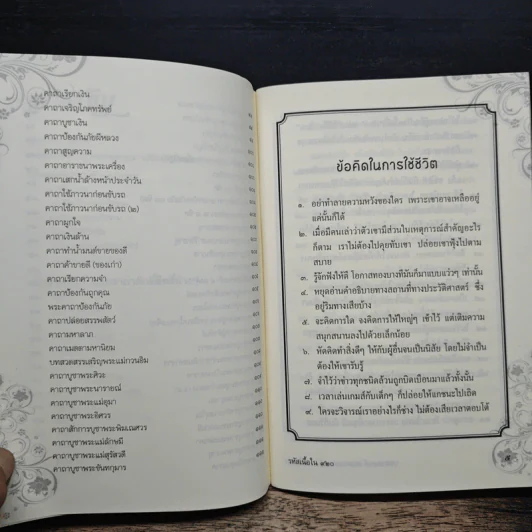 คาถาเรียกเงิน
คาถาเจริญโภคทรัพย์
คาถาบูชาเงิน
คาถาป้องกันภัยมีหลวง
คาถาสูญความ
คาถาอาราธนาพระเครื่อง
คาถาเสกน้ำล้างหน้าประจำวัน
คาถาใช้ภาวนาก่อนขับรถ
คาถาใช้ภาวนาก่อนขับรถ (๒)
คาถาผูกใจ
คาถาเงินล้าน
คาถาทำน้ำมนต์ขายของดี
คาถาค้าขายดี (ของเก่า)
คาถาเรียกความจำ
คาถาป้องกันถูกคุณ
พระคาถาป้องกันภัย
คาถาปล่อยสรรพสัตว์
คาถามหาลาภ
คาถาเมตตามหานิยม
บทสวดสรรเสริญพระแม่กวนอิม
คาถาบูชาพระศิวะ
คาถาบูชาพระนารายณ์
คาถาบูชาพระแม่อุมา
คาถาบูชาพระอิศวร
คาถาสักการบูชาพระพิฆเณศวร
คาถาบูชาพระแม่ลักษมี
คาถาบูชาพระแม่สุรัสวดี
คาถาบูชาพระขันทกุมาร
ข้อคิดในการใช้ชีวิต
๑. อย่าทำลายความหวังของใคร เพราะเขาอาจเหลืออยู่
แค่นั้นก็ได้
๒. เมื่อมีคนเล่าว่าตัวเขามีส่วนในเหตุการณ์สำคัญอะไร
ก็ตาม เราไม่ต้องไปคุยทับเขา ปล่อยเขาฟุ้งไปตาม
สบาย
๓. รู้จักฟังให้ดี โอกาสทองบางทีมันก็มาแบบแว่วๆ เท่านั้น
๔. หยุดอ่านคำอธิบายทางสถานที่ทางประวัติศาสตร์ ซึ่ง
อยู่ริมทางเสียบ้าง
๕. จะคิดการใด จงคิดการให้ใหญ่ๆ เข้าไว้ แต่เติมความ
สนุกสนานลงไปด้วยเล็กน้อย
๖. หัดคิดทำสิ่งดีๆ ให้กับผู้อื่นจนเป็นนิสัย โดยไม่จำเป็น
ต้องให้เขารับรู้
๗. จำไว้ว่าข่าวทุกชนิดล้วนถูกบิดเบือนมาแล้วทั้งนั้น
๘. เวลาเล่นเกมส์กับเด็กๆ ก็ปล่อยให้แกชนะไปเถิด
๙. ใครจะวิจารณ์เราอย่างไรก็ช่าง ไม่ต้องเสียเวลาตอบโต้
รหัสเนื้อใน ๙๒๐